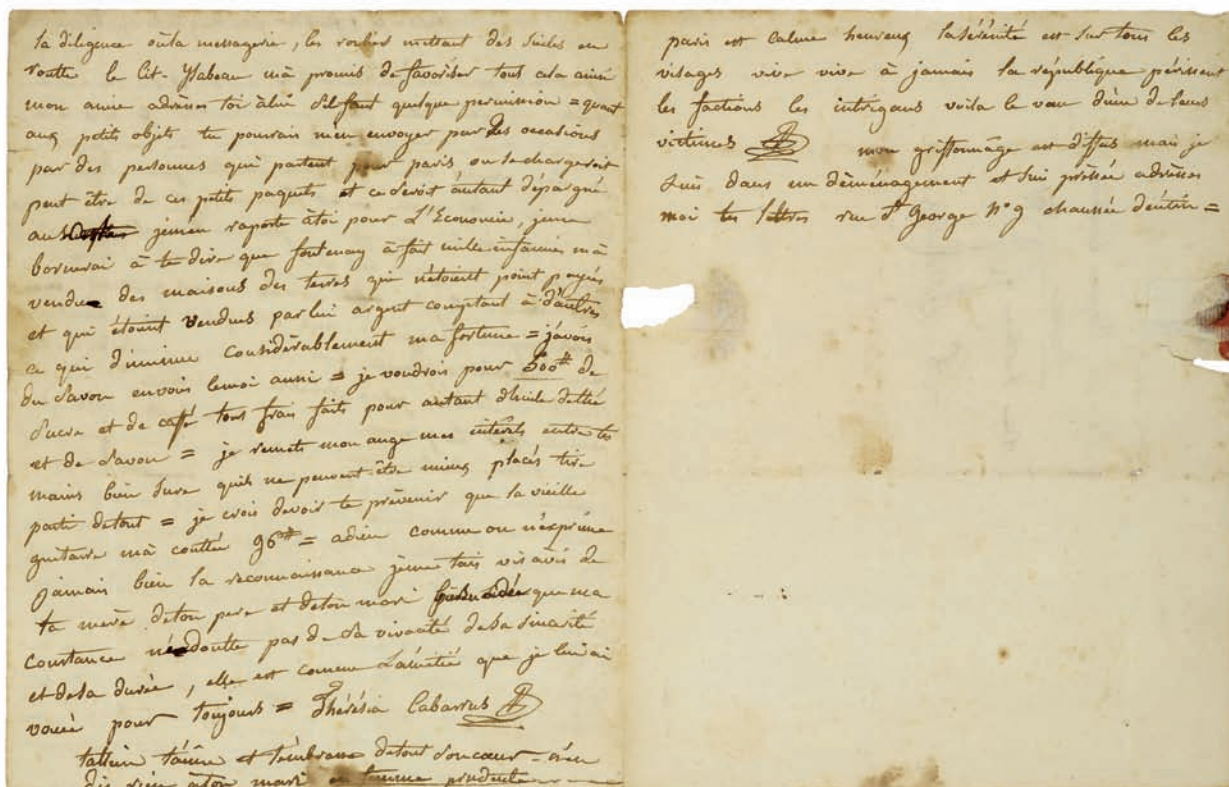 la diligence où la messagerie, les roulier mettant des siècles en
routte le Cit- Ysabeau m'à promis de favoriser tous cela ainsi
mon amie adrèsses toi à lui s'il faut quelque permission = quant
aux petits objets tu pourrais m'en envoyer par des occasions
par des personnes qui partent pour paris ou se chargeroit
peut être de ces petits paquets et ce seroit autant d'épargné
aux jemen raporte à toi pour L'Economie, jeme
bornerai à te dire que fontenay à fait mille infamies m'à
vendue des maisons des terres qui n'étoient point payées
et qui étoient vendues par lui argent comptant à d'autres
ce qui diminue considérablement ma fortune = j'avois
du Savon envois lemoi aussi = je voudrois pour 500# de
Sucre et de café tous frais faits pour autant d'huile
et de Savon = je remets mon ange mes intérêts entre tes
mains bien sure quils ne peuvent être mieux placés tire
parti detout = je crois devoir te prévenir que la vieille
guitarre m'à couttée 96# = adieu comme on n'exprime
jamais bien la reconnaissance jeme tais vis àvis de
ta mere deton pere et deton mari que ma
Constance n'endoutte pas de Sa vivacité desa Sincérité
et desa durée, elle est comme L'amitié que je lui ai
vouée pour toujours = Thérésia Cabarrus
tallien t'aime et t'embrasse detout Son coeur - n'en
dis rien àton mari en femme prudente
paris est calme heureux la Sérénité est Sur tous les
visages vive vive à jamais la république périssent
les factions les intrigans voila le voeu d'une de leurs
victimes mon griffonnage est diffus mais je
Suis dans un dèménagement et Sui préssée adrèsses
moi tes lettres rue St George N° 9 chaussée d'entin =